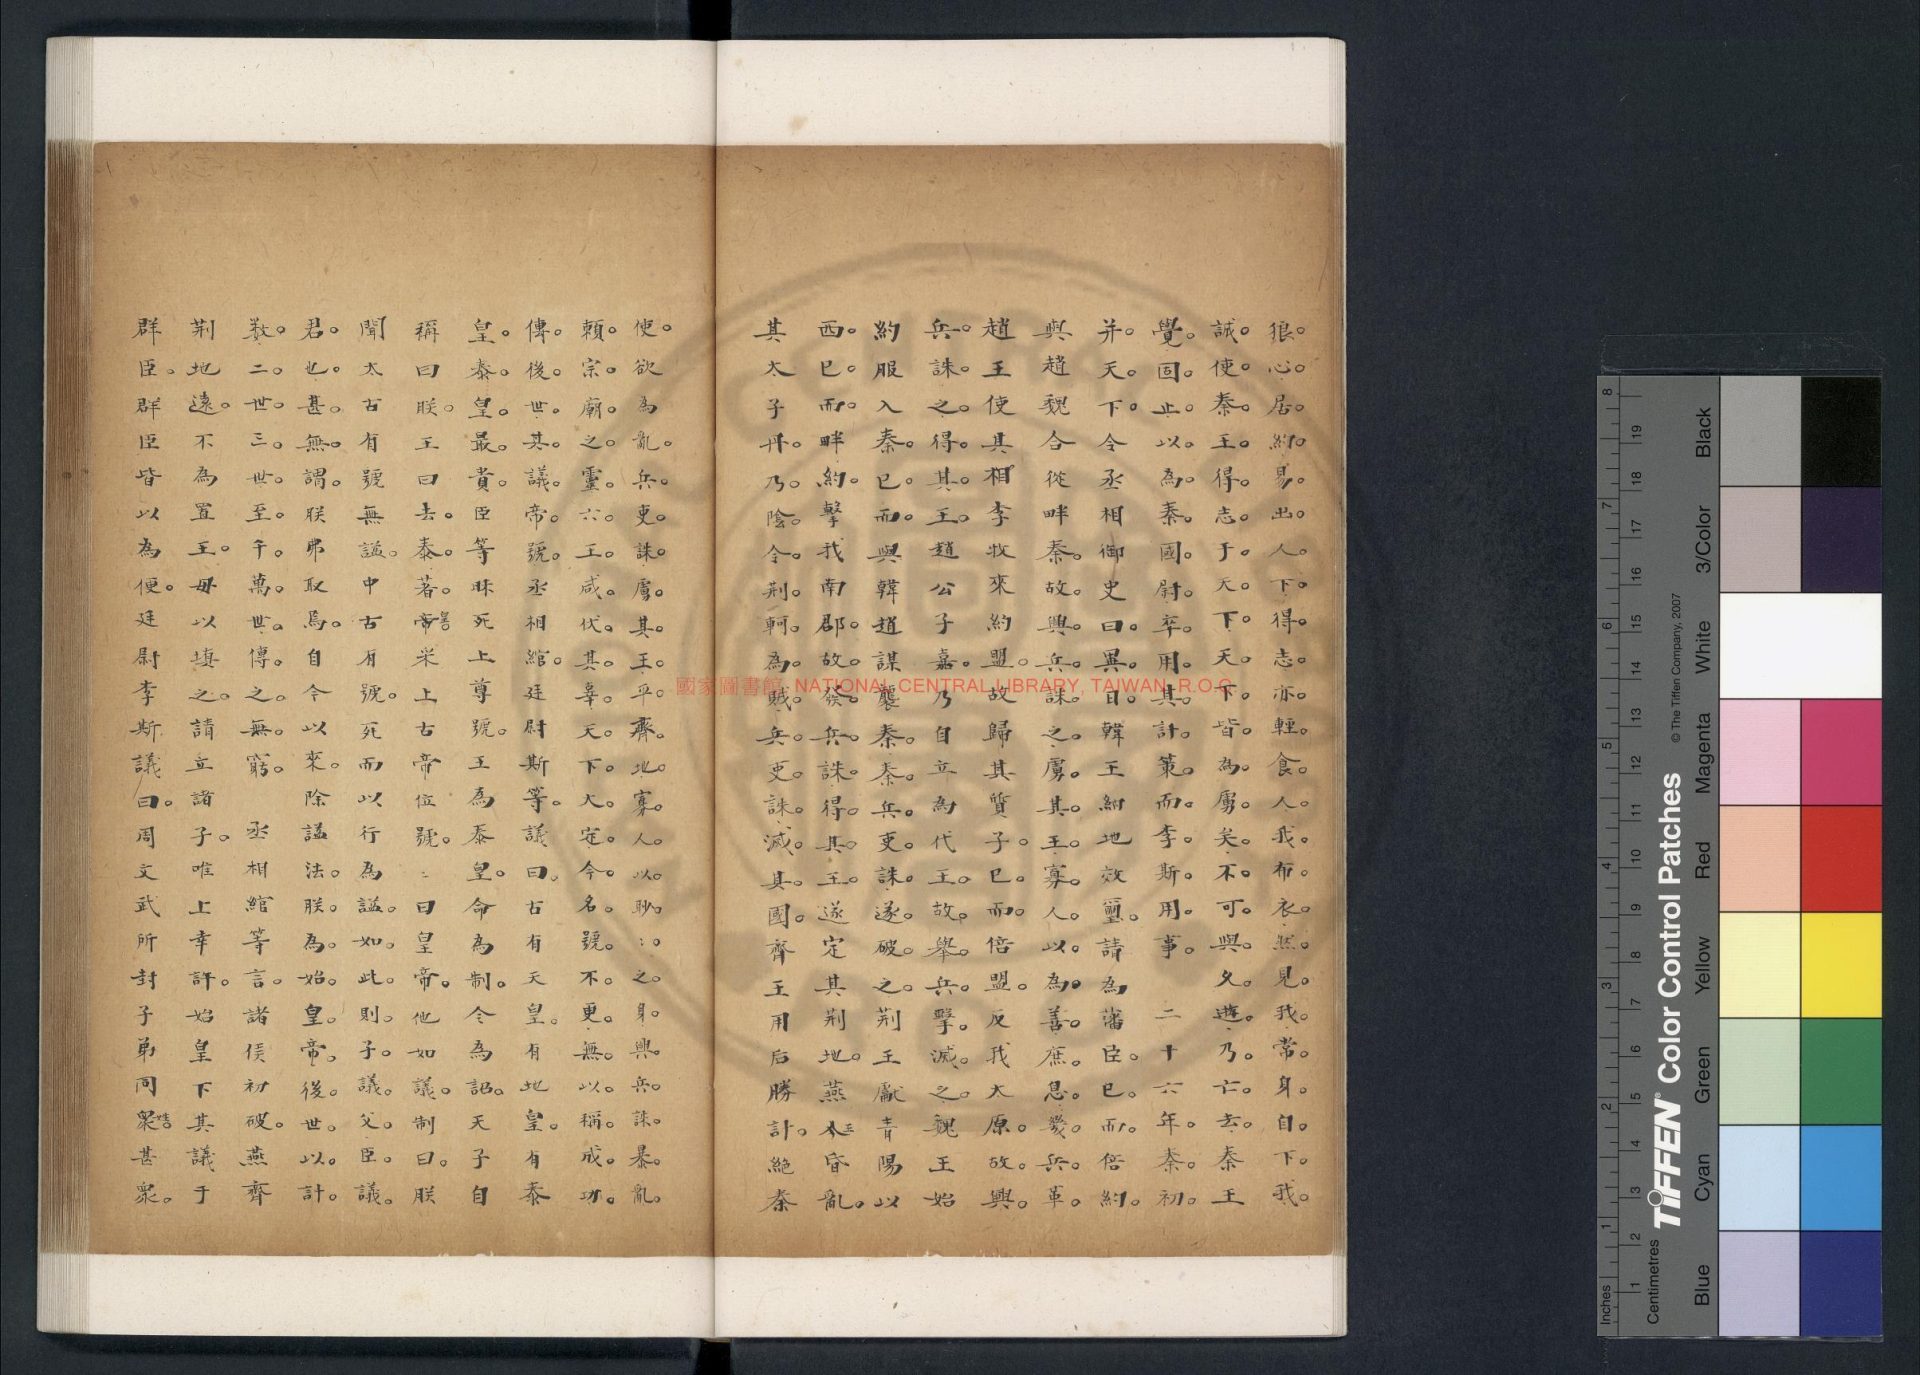 狼心居約易出人下得志亦輕食人我布衣然見我常身自下我
誠使秦王得志于天下天下皆為虜矣不可與久遊乃亡去秦王
覺固止以為秦國尉卒用其計策而李斯用事 二十六年秦初
并天下令丞相御史曰異日韓王納地效璽請為藩臣已而倍約
與趙魏合從畔秦故興兵誅之虜其王寡人以為善庶息幾兵革
趙王使其相李牧來約盟故歸其質子已而倍盟反我太原故興
兵誅之得其王趙公子嘉乃自立為代王故舉兵擊滅之魏王始
約服入秦已而與韓趙謀襲秦秦兵吏誅遂破之荆王獻青陽以
西已而畔約擊我南郡故發兵誅得其王遂定其荆地燕王昏亂
其太子丹乃陰令荆軻為賊兵吏誅滅其國齊王用后勝計絶秦
使欲為亂兵吏誅虜其王平齊地寡人以眇:之身興兵誅暴亂
賴宗廟之靈六王咸伏其辜天下大定今名號不更無以稱成功
傳後世其議帝號丞相綰廷尉斯等議曰古有天皇有地皇有泰
皇泰皇最貴臣等昧死上尊號王為泰皇命為制令為詔天子自
稱曰朕王曰去泰著帝采上古帝位號:曰皇帝他如議制曰朕
聞太古有號無諡中古有號死而以行為諡如此則子議父臣議
君也甚無謂朕弗取焉自今以來除諡法朕為始皇帝後世以計
數二世三世至千萬世傳之無窮 丞相綰等言諸侯初破燕齊
荆地遠不為置王毋以填之請立諸子唯上幸許始皇下其議于
群臣群臣皆以為便廷尉李斯議曰周文武所封子弟同衆甚衆
國家圖書館 NATIONAL CENTRAL LIBRARY, TAIWAN, R.O.C
TIFFEN Color Control Patches
© The Tiffen Company, 2007
Inches
Centimetres
Blue Cyan Green Yellow Red Magenta White 3/Color Black